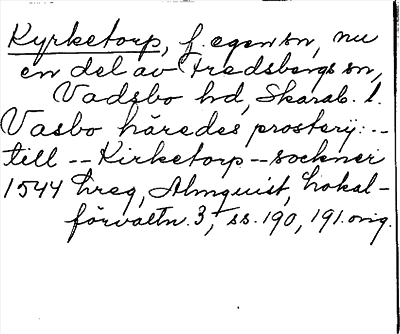 Kyrketorp, f. egen sn, nu
en del av Fredsbergs sn,
Vadsbo hd, Skarab. l.
Vasbo häredes prosterij: --
till -- Kirketorp -- sockner
1544 hreg, Almquist, Lokal-
förvaltn. 3, ss. 190, 191. orig.